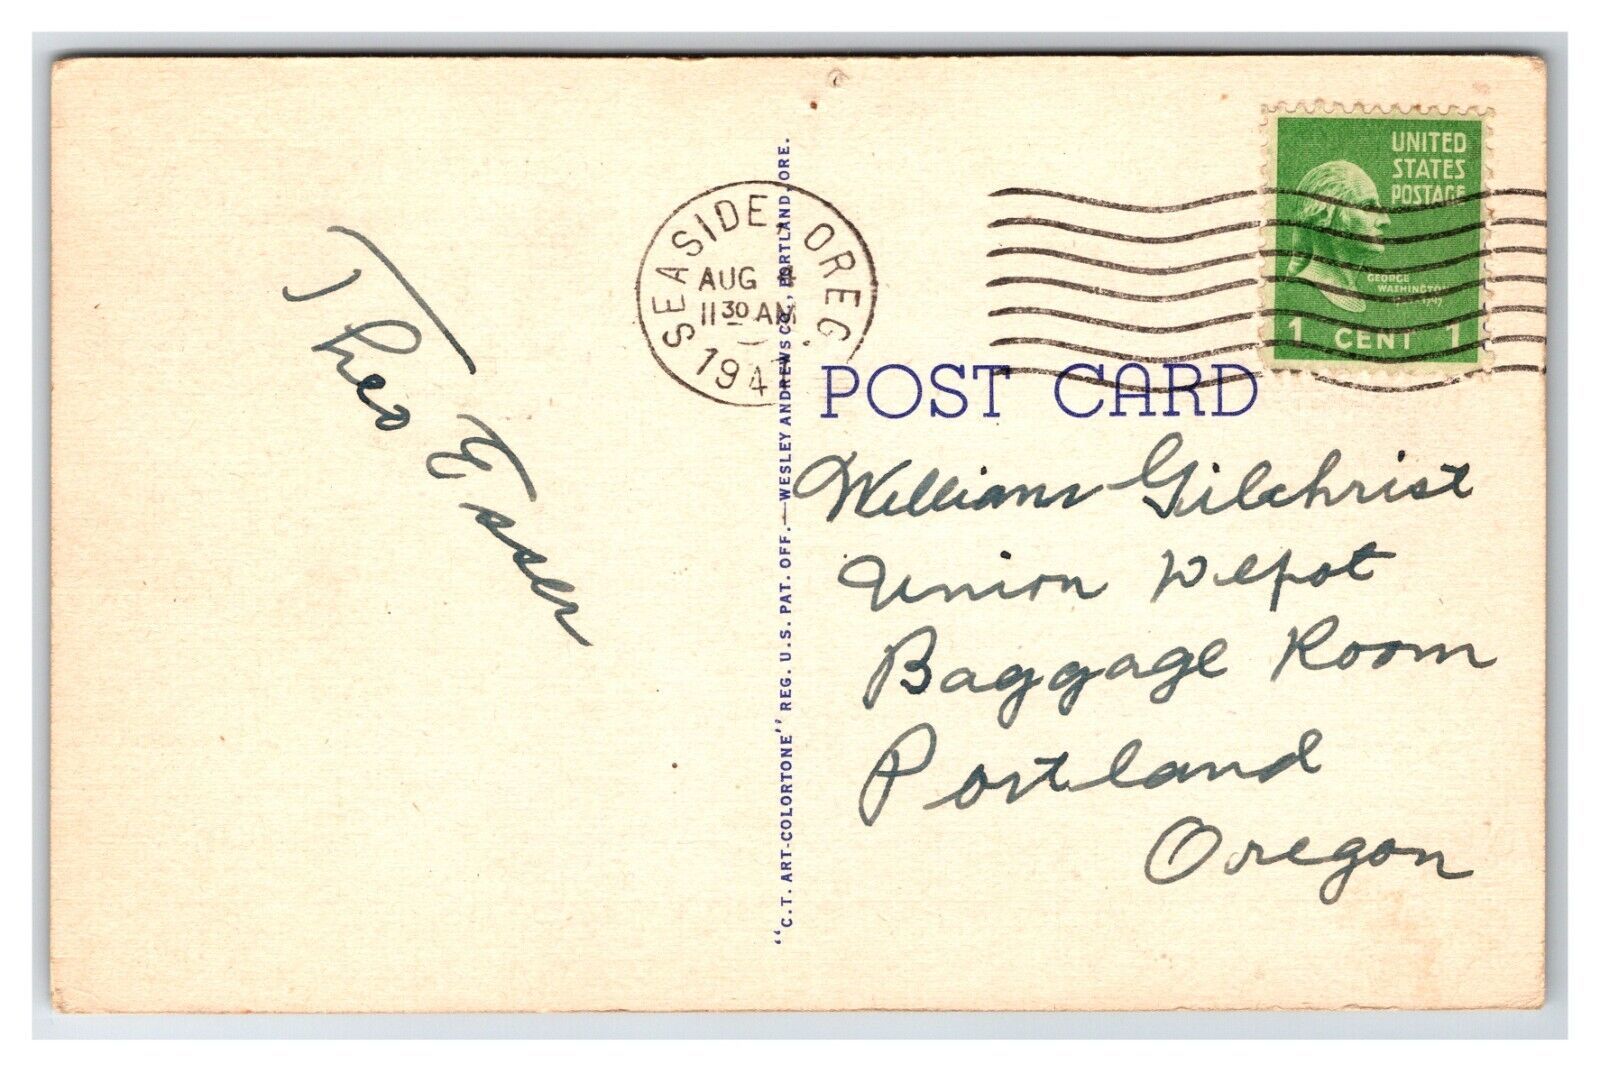 Theo E Esser
SEASIDE, OREG
AUG 4
11 30 AM
194
UNITED
STATES
POSTAGE
GEORGE
WASHINGTON
1 CENT 1
POST CARD
William Gilchrist
Union Depot
Baggage Room
Portland
Oregon
"C.T. ART-COLORTONE" REG. U.S. PAT. OFF.—WESLEY ANDREWS CO., PORTLAND, ORE.